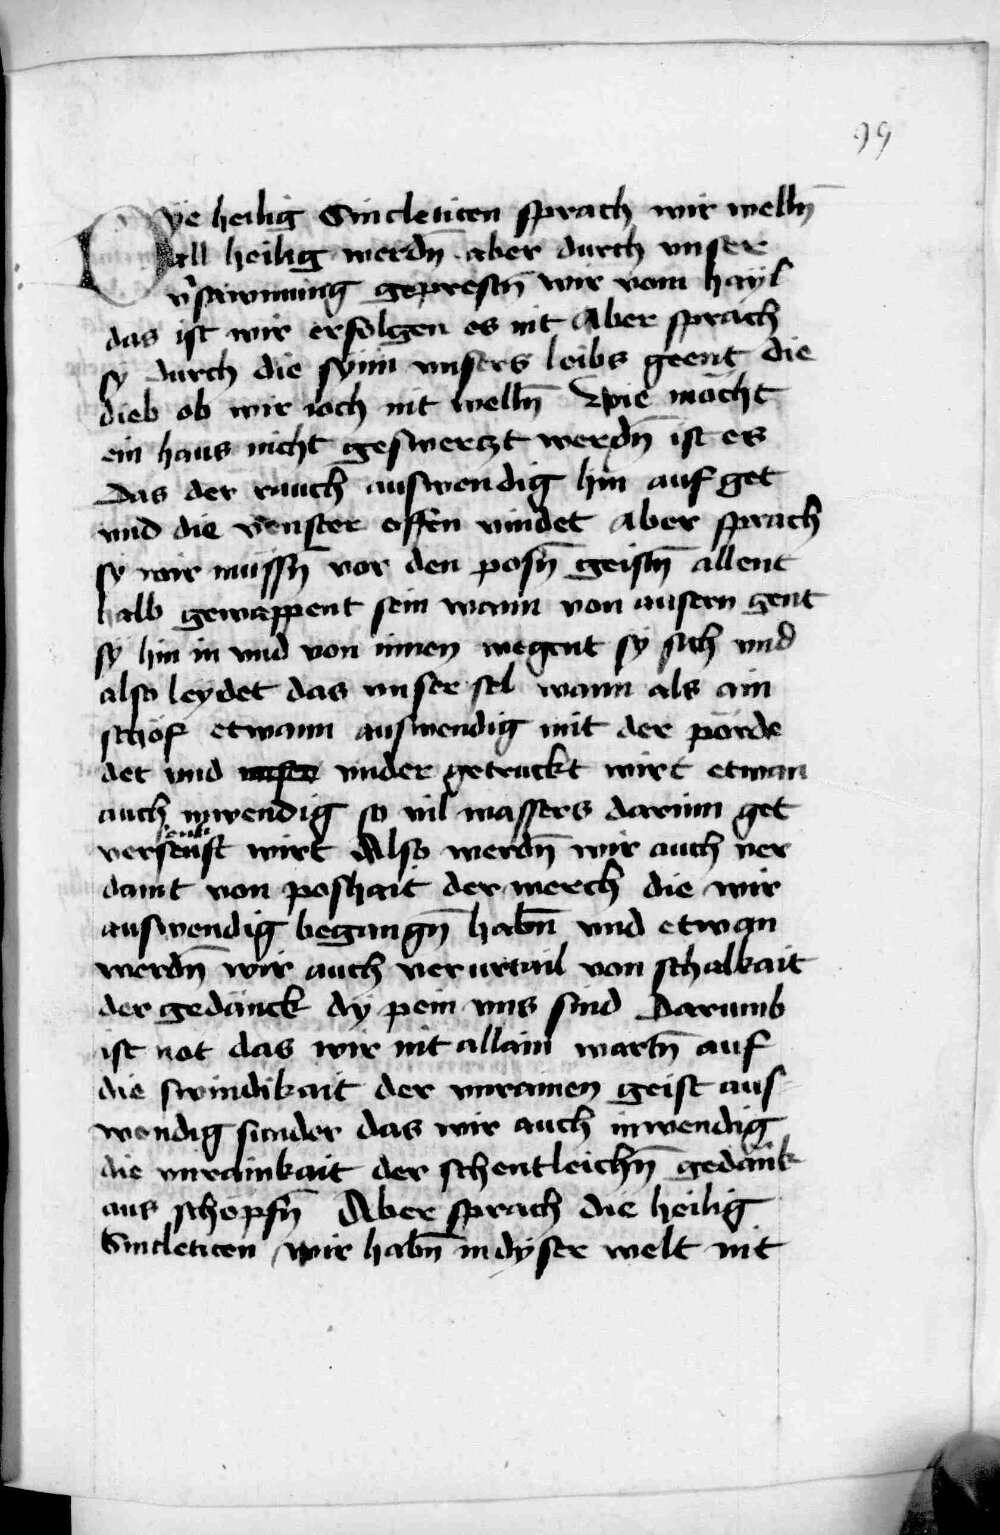 99
Dye heilig Sincleticen sprach wir welln̄
all heilig werdn̄ aber durch vnser
v'sawmung geprestn̄ wir vom hayl
das ist wir erfolgen es nit Aber sprach
sy durch die synn vnsers leibs geent die
dieb ob wir ioch nit welln̄ Wie möcht
ein haus nicht geswertzt werdn̄ ist es
Das der rauch auswendig hin auf get
vnd die venster offen vindet Aber sprach
sy wir müssn̄ vor den posn̄ geistn̄ allent
halb gewappent sein wann von ausern gent
sy hin in vnd von innen wegent sy sich vnd
also leydet das vnser sel wann als ain
schöf etwann auswendig mit der pörde
det vnd vnder getruckt wirt etwan
auch inwendig so vil wassers darinn get
versenkt wirt Also werdn̄ wir auch ver
damt von poshait der werch die wir
auswendig begangn̄ habn̄ vnd etwan
werdn̄ wir auch verurtail von schalkait
der gedänck dy pein vns sind Darumb
ist not das wir nit allain wartn̄ auf
die swindikait der vnrainen geist aus
wendig sunder das wir auch inwendig
die vnrainkait der schentleichn̄ gedänk
aus schöpfn̄ Aber sprach die heilig
Sincleticen wir habn̄ in dyser welt nit